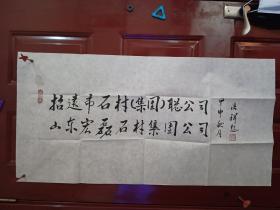 招远市石材(集团)联公司
山东宏磊石材集团公司
甲申秋月